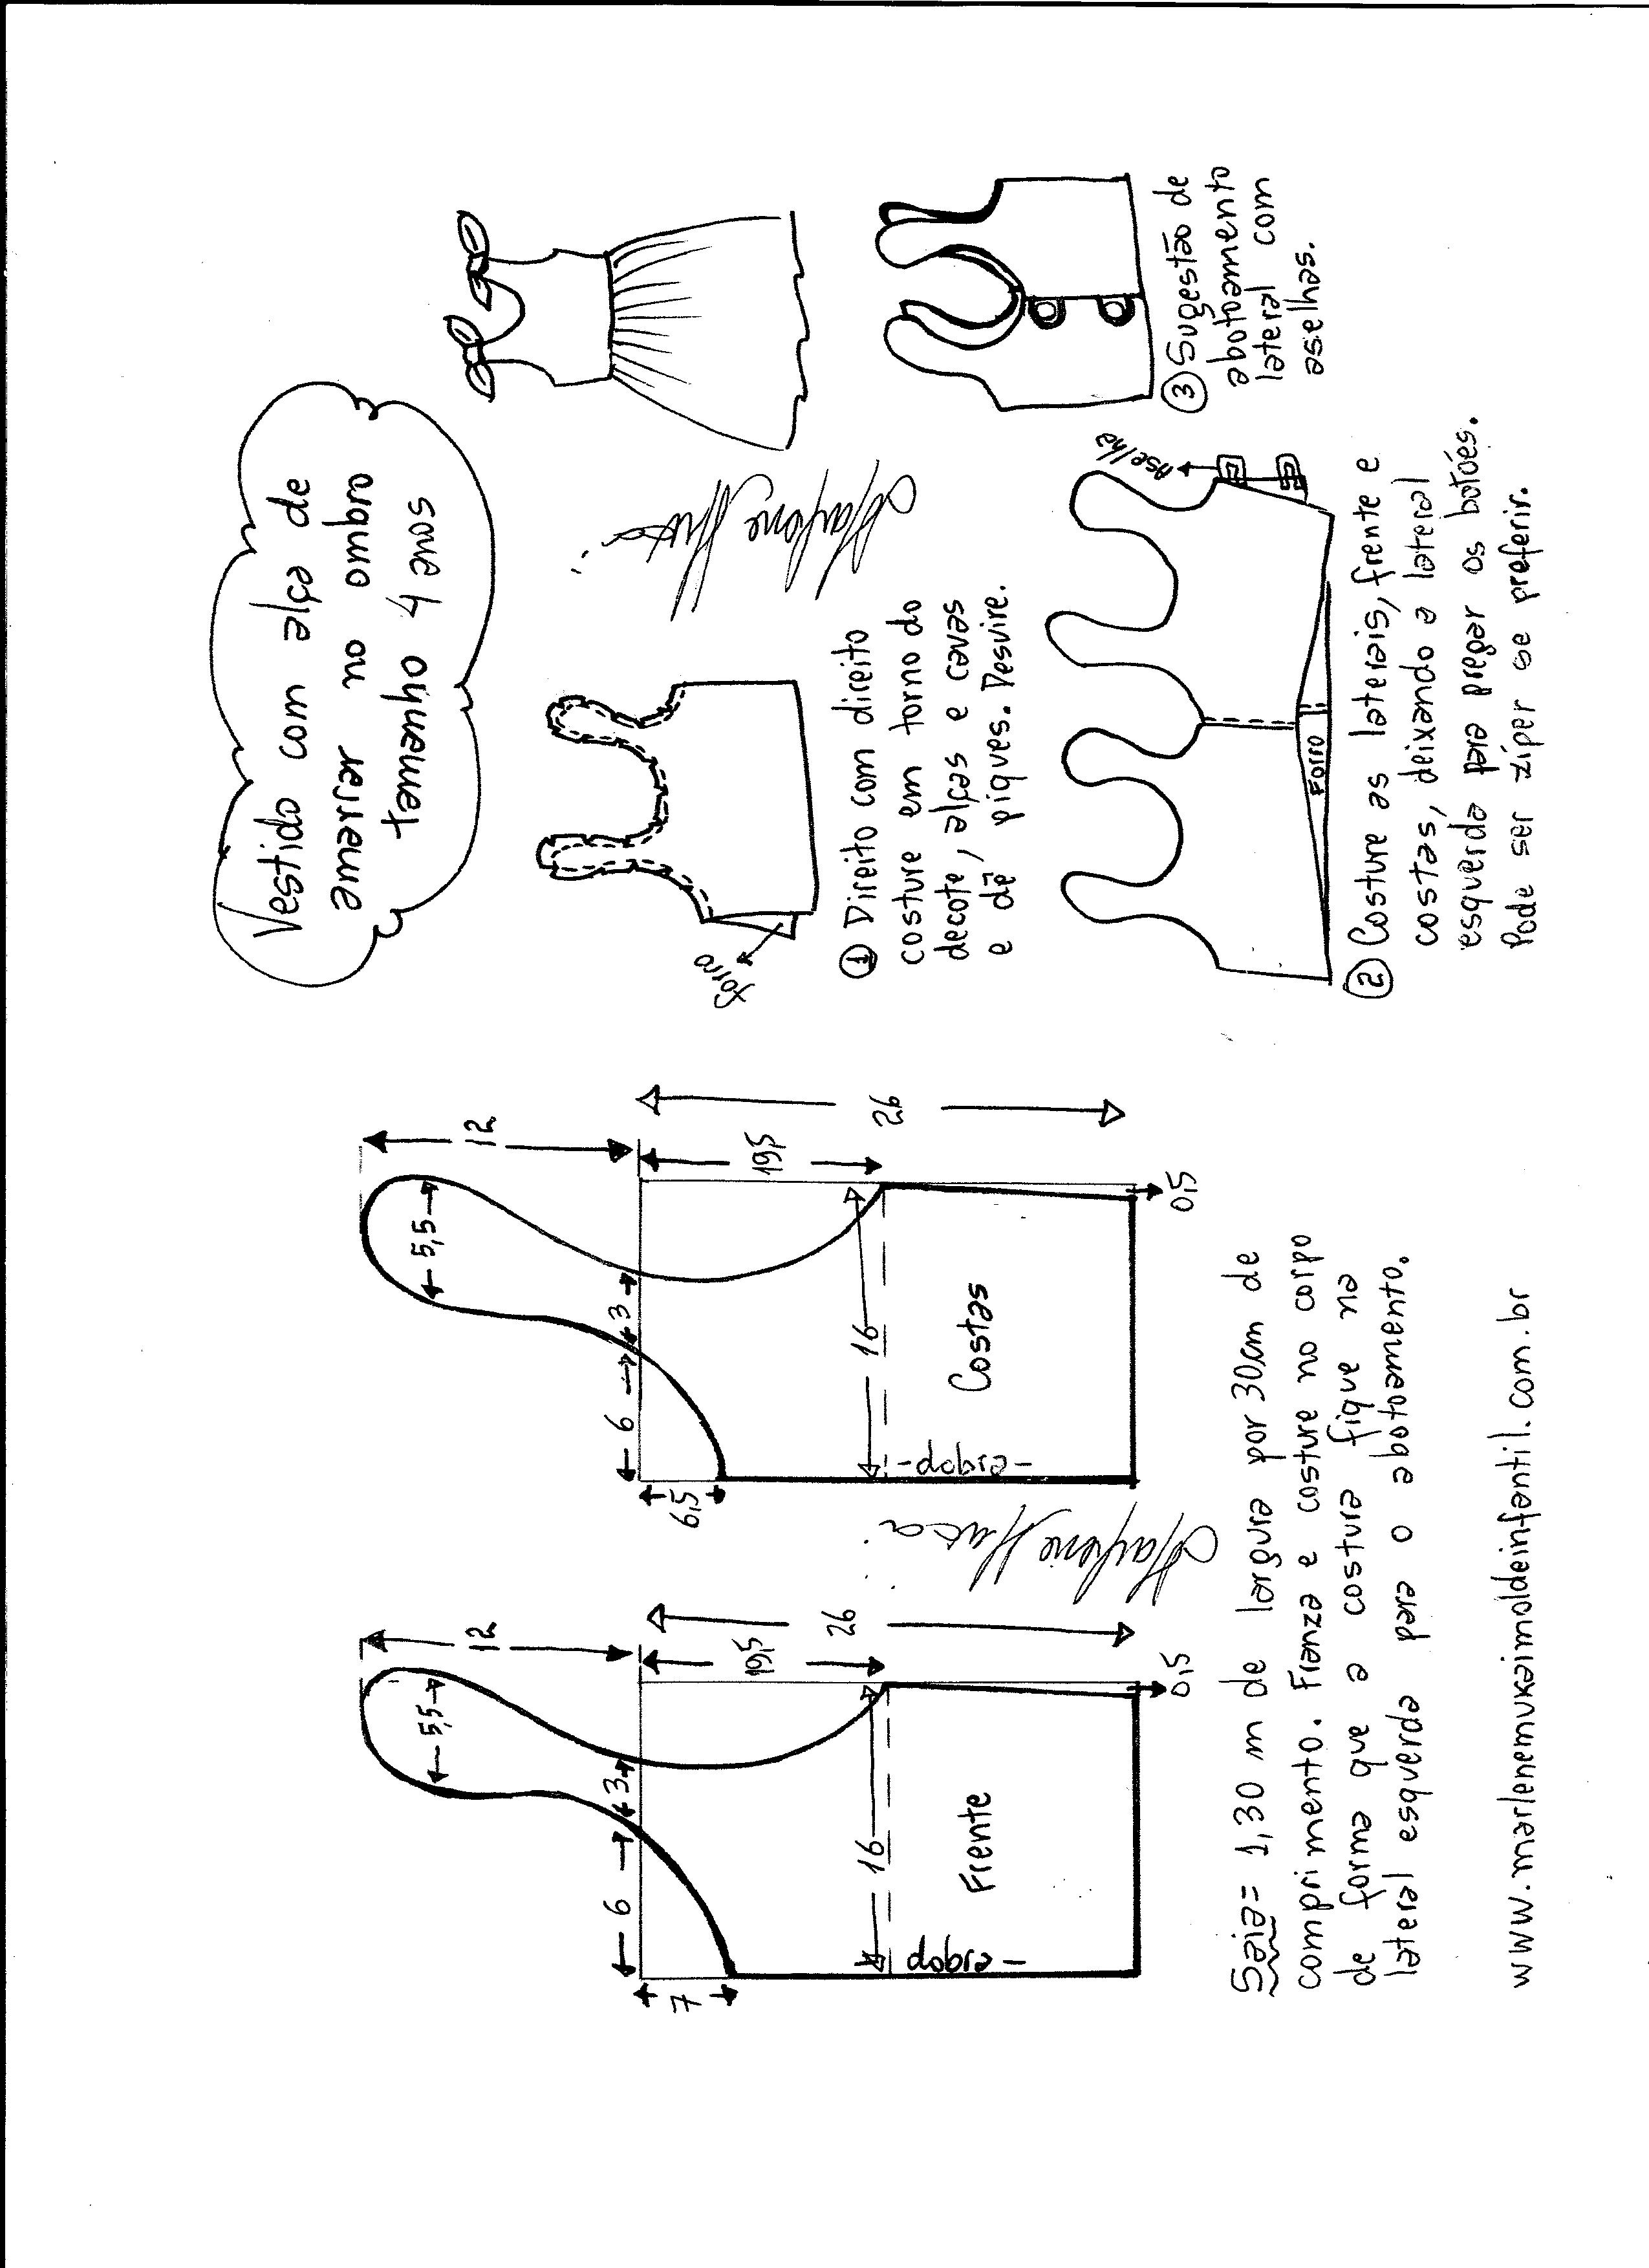 Vestido com alça de
amarrar no ombro
tamanho 4 anos
12
5,5
3
6
7
26
16
dobra
Frente
0,5
Marlene Mukai
12
5,5
3
6
6,5
26
16
dobra
Costas
0,5
Saia = 1,30 m de largura por 30cm de
comprimento. Franza e costure no corpo
de forma que a costura fique na
lateral esquerda para o abotoamento.
www.marlenemukaimoldeinfantil.com.br
forro
1 Direito com direito
costure em torno do
decote, alças e cavas
e dê piques. Desvire.
Marlene Mukai
Forro
Aselha
2 Costure as laterais, frente e
costas, deixando a lateral
esquerda para pregar os botões.
Pode ser zíper se preferir.
3 Sugestão de
abotoamento
lateral com
aselhas.